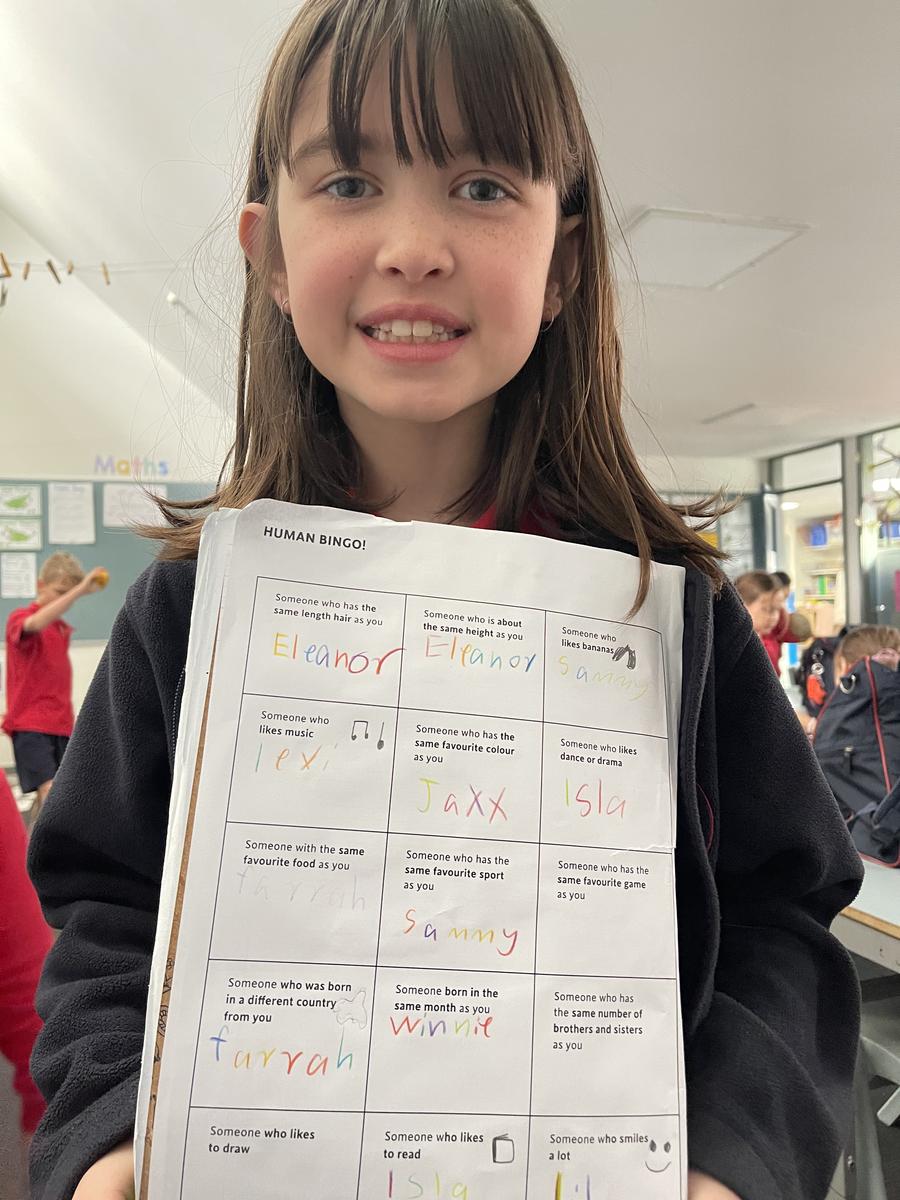 Maths
HUMAN BINGO!
Someone who has the
same length hair as you
Eleanor
Someone who is about
the same height as you
Eleanor
Someone who
likes bananas
Sammy
Someone who
likes music
lexi
Someone who has the
same favourite colour
as you
Jaxx
Someone who likes
dance or drama
Isla
Someone with the same
favourite food as you
farrah
Someone who has the
same favourite sport
as you
Sammy
Someone who has the
same favourite game
as you
Someone who was born
in a different country
from you
farrah
Someone born in the
same month as you
Winnie
Someone who has
the same number of
brothers and sisters
as you
Someone who likes
to draw
Someone who likes
to read
Isla
Someone who smiles
a lot